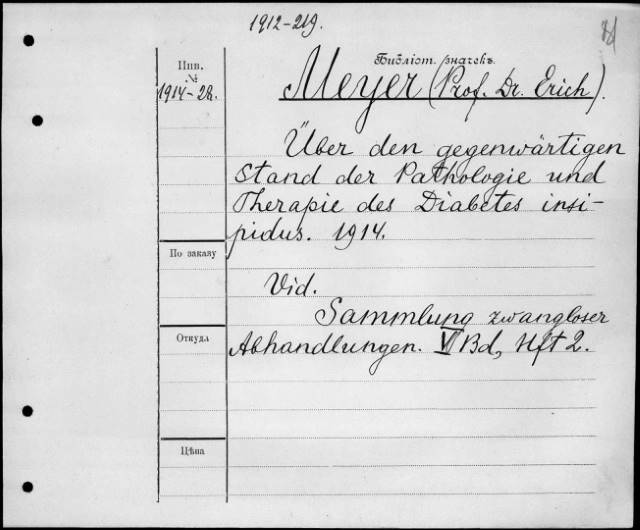 1912-219.
Библіот. значекъ.
Инв.
№
1914-28.
Meyer (Prof. Dr. Erich).
Über den gegenwärtigen
Stand der Pathologie und
Therapie des Diabetes insi-
pidus. 1914.
По заказу
Vid.
Sammlung zwangloser
Откуда
Abhandlungen. VI Bd, Hft 2.
Цѣна